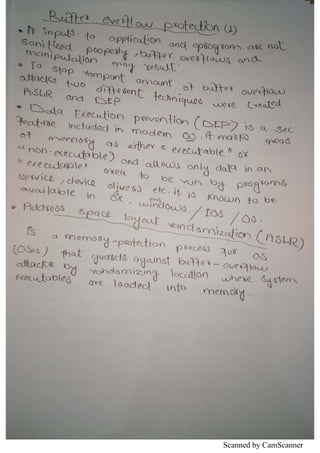 Buffer overflow protection (1)
• If inputs to application and program are not
sanitized properly, buffer overflows and
manipulation may result.
• To stop rampant amount of buffer overflow
attacks two different techniques were created
ASLR and DEP
• Data Execution prevention (DEP) is a sec
feature included in modern OS. It marks areas
of memory as either "executable" or
"non-executable) and allows only data in an
"executable" area to be run by programs
service, device drivers etc. it is known to be
available in OX, my windows / IOS / OS.
• Address space layout randomization (ASLR)
is a memory-protection process for OS
(OSes) that guards against buffer-overflow
attacks by randomizing location where system
executables are loaded into memory.
Scanned by CamScanner